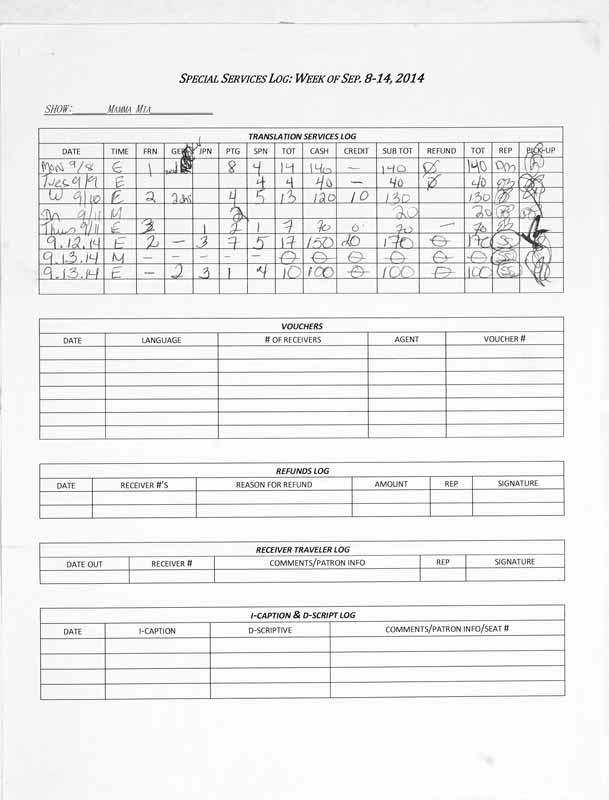 SPECIAL SERVICES LOG: WEEK OF SEP. 8-14, 2014
SHOW: MAMMA MIA
TRANSLATION SERVICES LOG
DATE TIME FRN GER JPN PTG SPN TOT CASH CREDIT SUB TOT REFUND TOT REP PICK-UP
Mon 9/8 E 1 8 4 14 140 — 140 Ø 140
Tues 9/9 E 4 4 40 — 40 Ø 40
W 9/10 E 2 4 5 13 120 10 130 130
9/11 M 2 20 20
Thurs 9/11 E 1 2 1 7 70 0 70 — 70
9.12.14 E 2 — 3 7 5 17 150 20 170 0 170 SS
9.13.14 M — — — — — 0 0 0 0 0 0 SS
9.13.14 E — 2 3 1 4 10 100 0 100 0 100 SS
VOUCHERS
DATE LANGUAGE # OF RECEIVERS AGENT VOUCHER #
REFUNDS LOG
DATE RECEIVER #'S REASON FOR REFUND AMOUNT REP SIGNATURE
RECEIVER TRAVELER LOG
DATE OUT RECEIVER # COMMENTS/PATRON INFO REP SIGNATURE
I-CAPTION & D-SCRIPT LOG
DATE I-CAPTION D-SCRIPTIVE COMMENTS/PATRON INFO/SEAT #